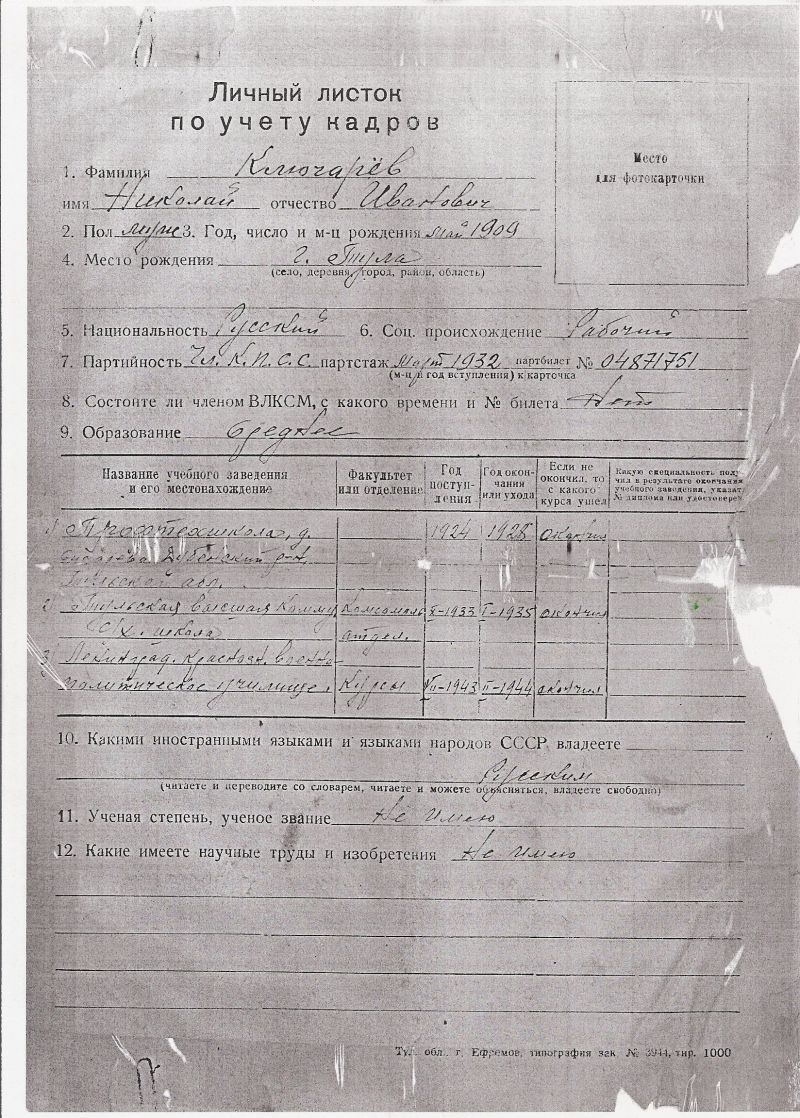 Личный листок
по учету кадров
Место
для фотокарточки
1. Фамилия Ключарёв
имя Николай отчество Иванович
2. Пол муж 3. Год, число и м-ц рождения май 1909
4. Место рождения г. Тула
(село, деревня, город, район, область)
5. Национальность Русский 6. Соц. происхождение Рабочий
7. Партийность Чл. К.П.С.С. партстаж Март 1932 партбилет № 04871751
(м-ц и год вступления) к карточка
8. Состоите ли членом ВЛКСМ, с какого времени и № билета Нет
9. Образование Среднее
Название учебного заведения и его местонахождение
Факультет или отделение
Год поступления
Год окончания или ухода
Если не окончил, то с какого курса ушел
Какую специальность получил в результате окончания учебного заведения, указать № диплома или удостовер
1) д. 1924 1928 окончил
Дубенский р-н,
Тульской обл.
2) Тульская высшая Комму Комсомоль X-1933 I-1935 окончил
С/х. школа отдел.
3) Ленинград. Краснозн. военно-
политическое училище. Курсы VII-1943 II-1944 окончил
10. Какими иностранными языками и языками народов СССР владеете
Русским
(читаете и переводите со словарем, читаете и можете объясняться, владеете свободно)
11. Ученая степень, ученое звание Не имею
12. Какие имеете научные труды и изобретения Не имею
Тул. обл. г. Ефремов, типография зак. № 3944, тир. 1000